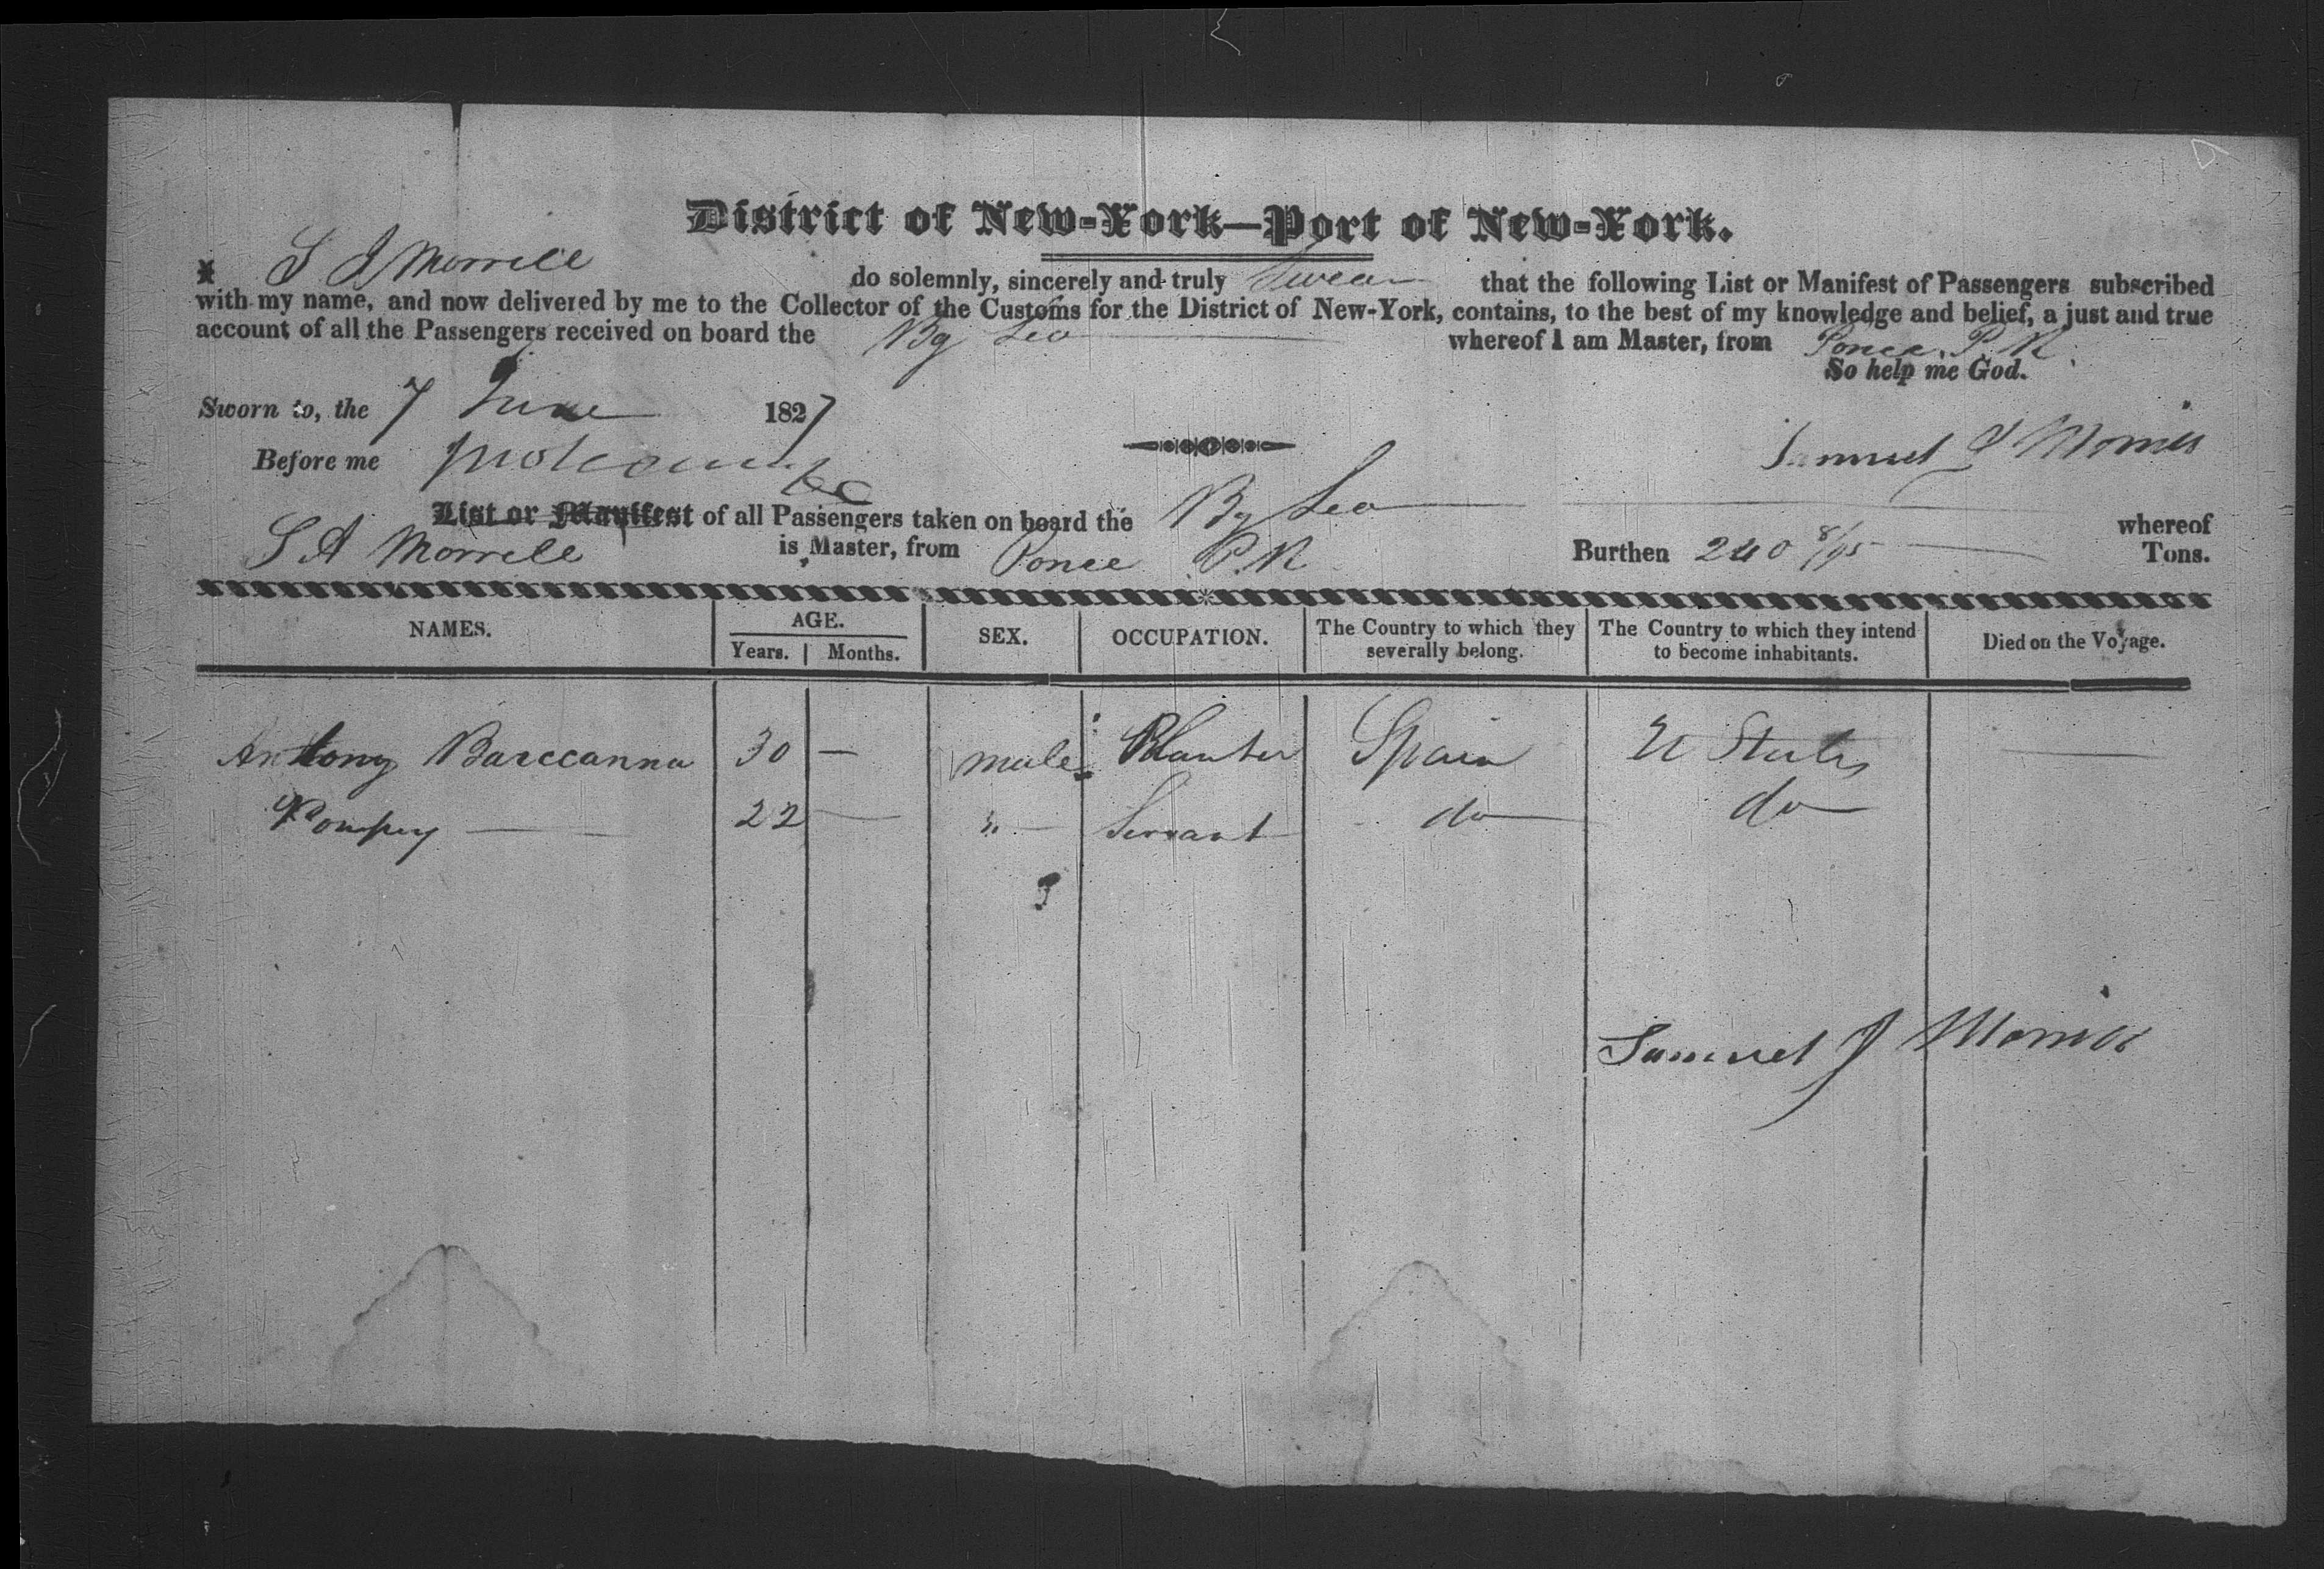 District of New-York—Port of New-York.
I S J Morrell do solemnly, sincerely and truly Swear that the following List or Manifest of Passengers subscribed
with my name, and now delivered by me to the Collector of the Customs for the District of New-York, contains, to the best of my knowledge and belief, a just and true
account of all the Passengers received on board the Bg Leo whereof I am Master, from Ponce P. R.
So help me God.
Sworn to, the 7 June 1827
Before me
Samuel J Morrill
List or Manifest of all Passengers taken on board the Bg Leo whereof
S A Morrell is Master, from Ponce P. R Burthen 240 8/95 Tons.
NAMES. AGE. SEX. OCCUPATION. The Country to which they severally belong. The Country to which they intend to become inhabitants. Died on the Voyage.
Years. Months.
Antony Barccanna 30 — male Planter Spain U States —
Pompey — 22 — " Servant do do
Samuel J Morrill